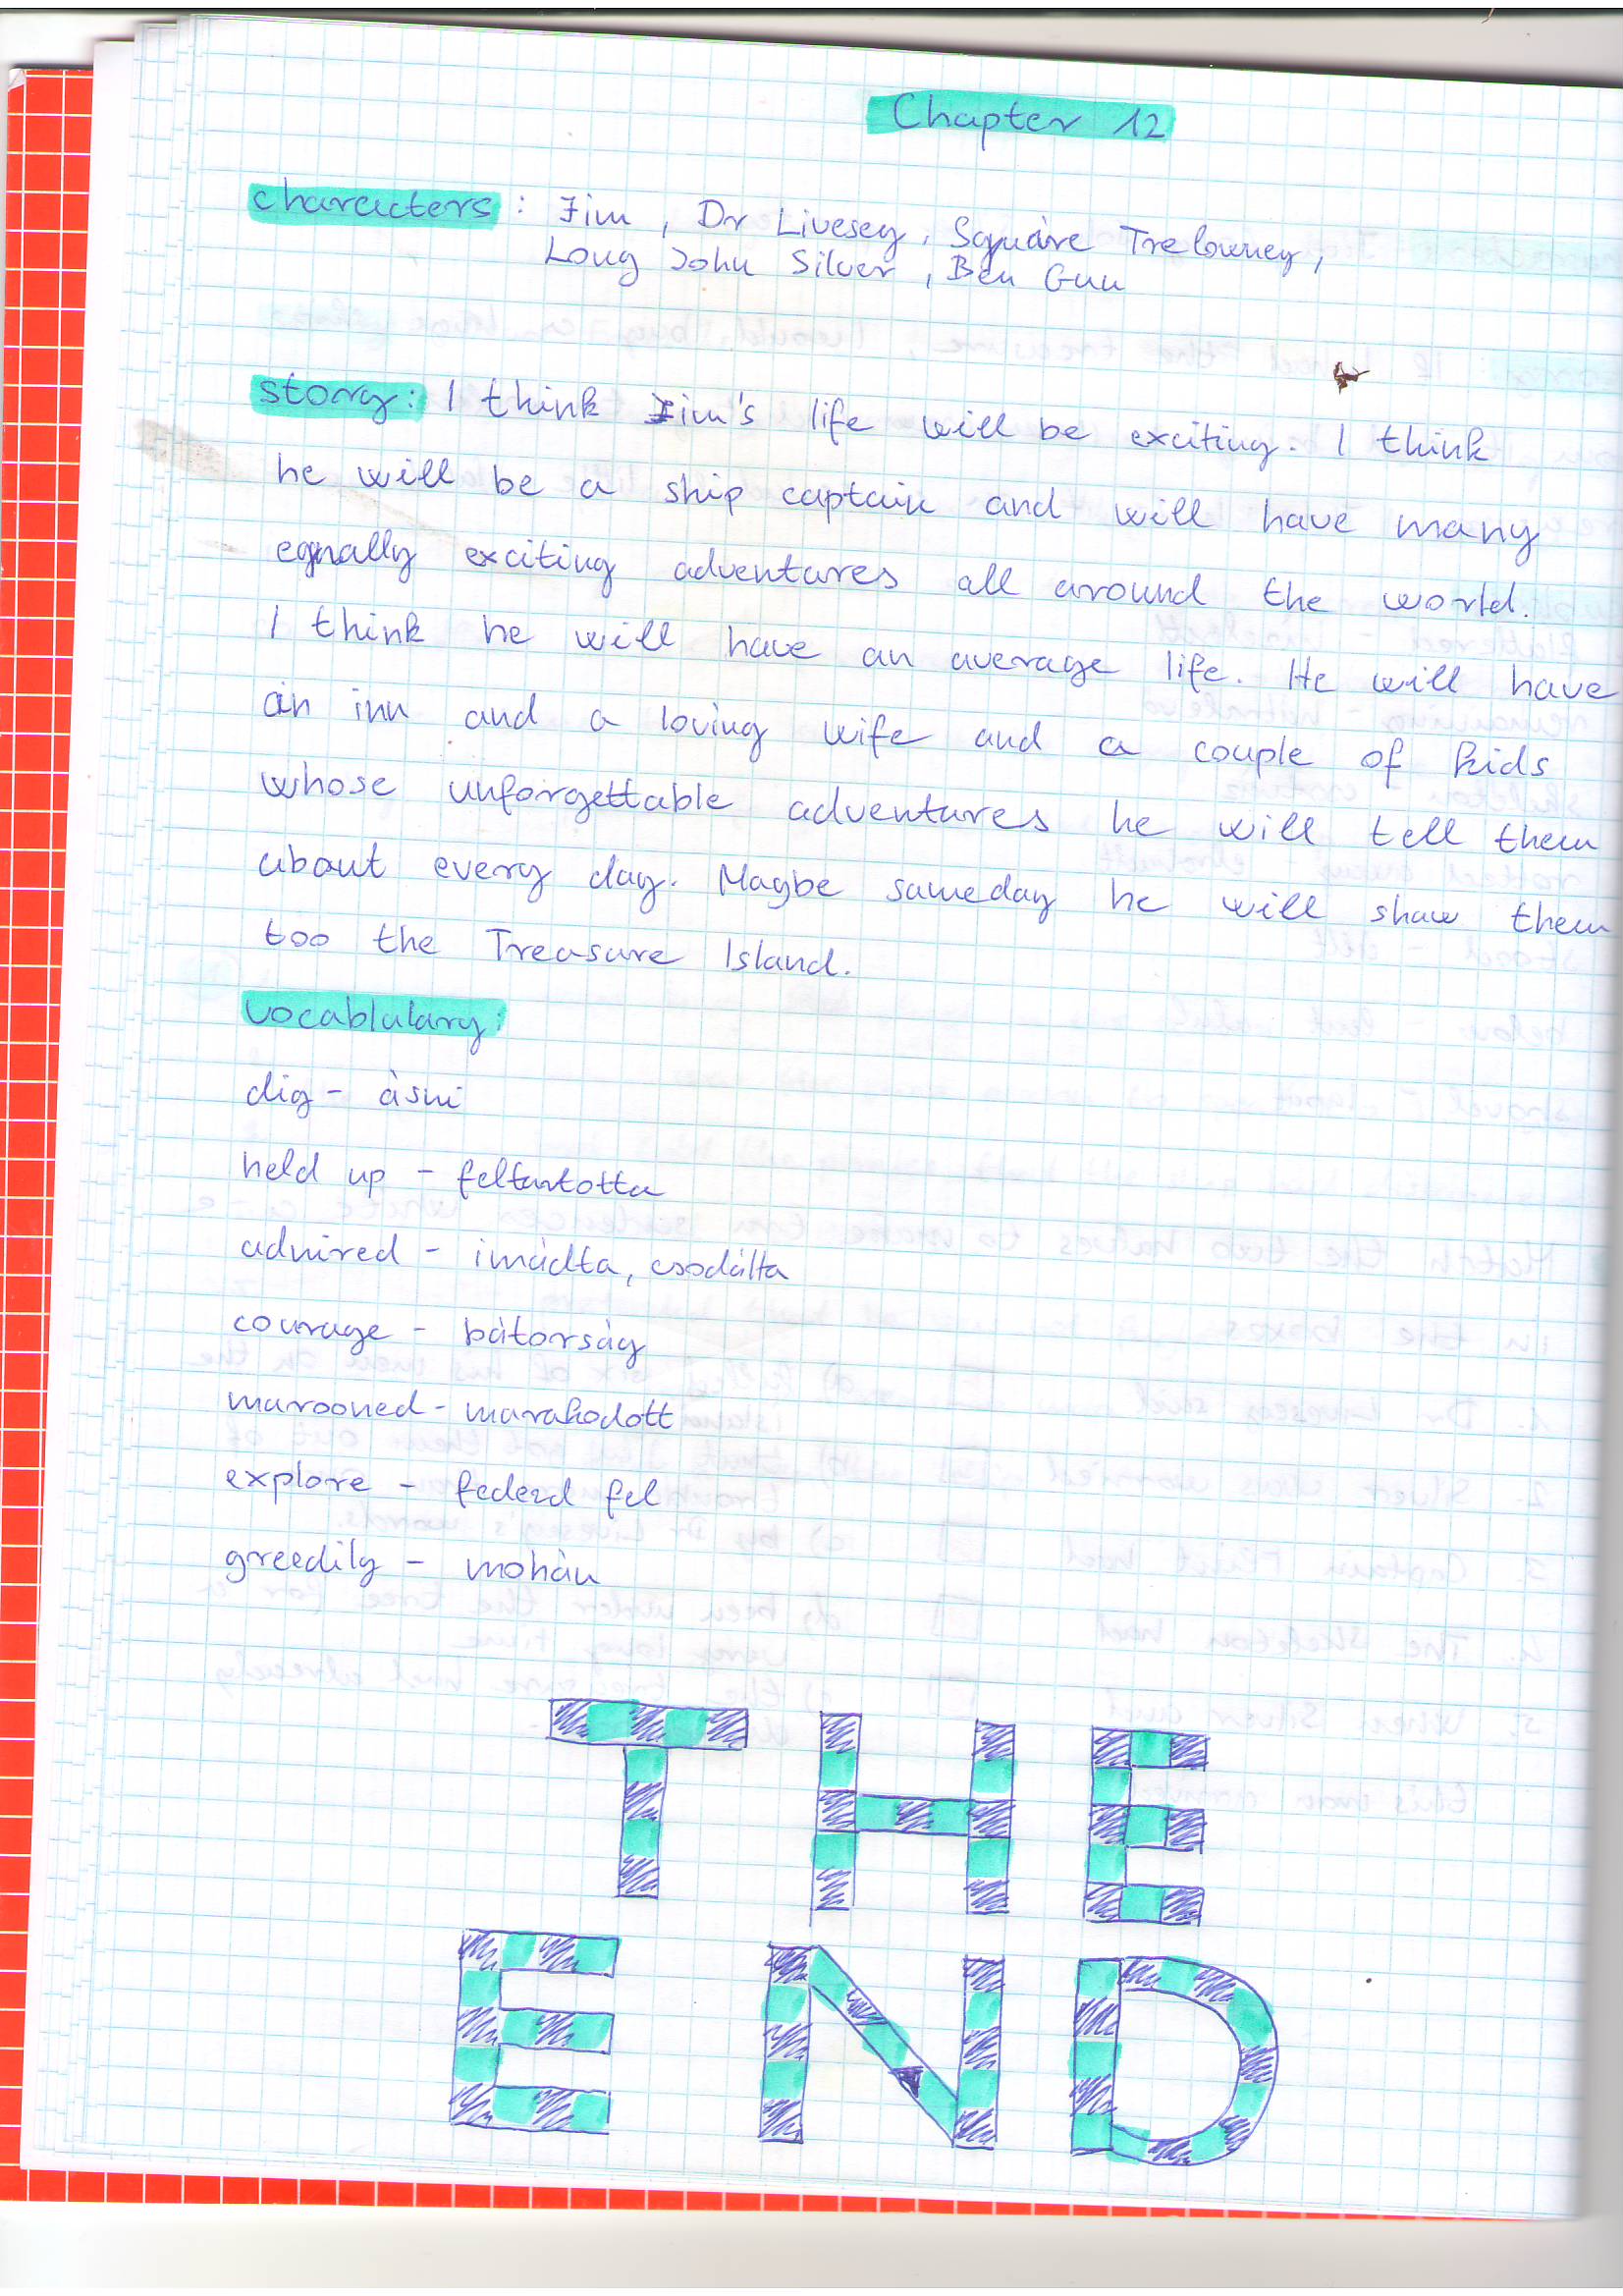 Chapter 12
characters: Jim, Dr Livesey, Squàre Trelowney,
Long John Silver, Ben Gun
story: I think Jim's life will be exciting. I think
he will be a ship captain and will have many
equally exciting adventures all around the world.
I think he will have an average life. He will have
an inn and a loving wife and a couple of kids
whose unforgettable adventures he will tell them
about every day. Maybe sameday he will shaw them
too the Treasure Island.
vocablulary:
dig - àsni
held up - feltartotta
admired - imádta, csodálta
courage - bàtorság
marooned - marakodott
explore - fedezd fel
greedily - mohàn
THE
END